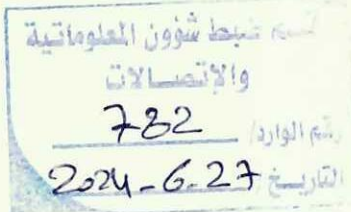 قسم ضبط شؤون المعلوماتية
والإتصالات
رقم الوارد/ 782
التاريخ/ 2024-6-27